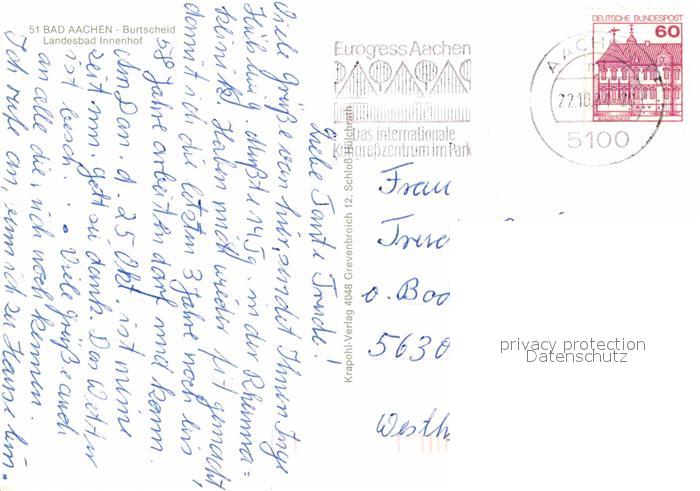 51 BAD AACHEN - Burtscheid
Landesbad Innenhof
Liebe Tante Trude!
Viele Grüße von hier sendet Ihnen Inge
Hühling. Mußte 14 Tg. in der Rheuma=
klinik. Haben mich wieder fit gemacht,
damit ich die letzten 3 Jahre noch bis
58 Jahre arbeiten darf und kann.
Am Don. d. 25 Okt. ist meine
Zeit um. Gott sei dank. Das Wetter
ist besch... Viele Grüße auch
an alle die mich noch kennen.
Ich rufe an, wenn ich zu Hause bin.
Krapohl-Verlag 4048 Grevenbroich 12, Schloß Hülchrath
Eurogress Aachen
Das internationale
Kongreßzentrum im Park
AACHEN
22.10.
5100
DEUTSCHE BUNDESPOST
60
Frau
o. Boo
5630
Westh
privacy protection
Datenschutz